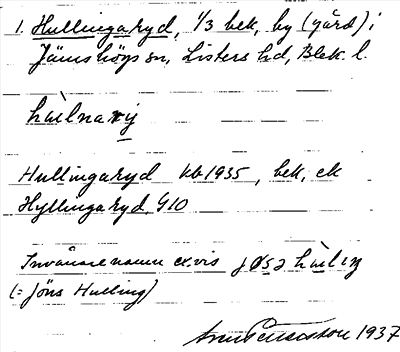 1. Hullingaryd, 1/3 bek, by (gård) i
Jämshögs sn, Listers hd, Blek. l.
hùlnarý
Hullingaryd kb 1935, bek, ek
Hyllingaryd G10
Invånarenamn ex.vis jØsə hùlıŋ
(= Jöns Hulling)
1937